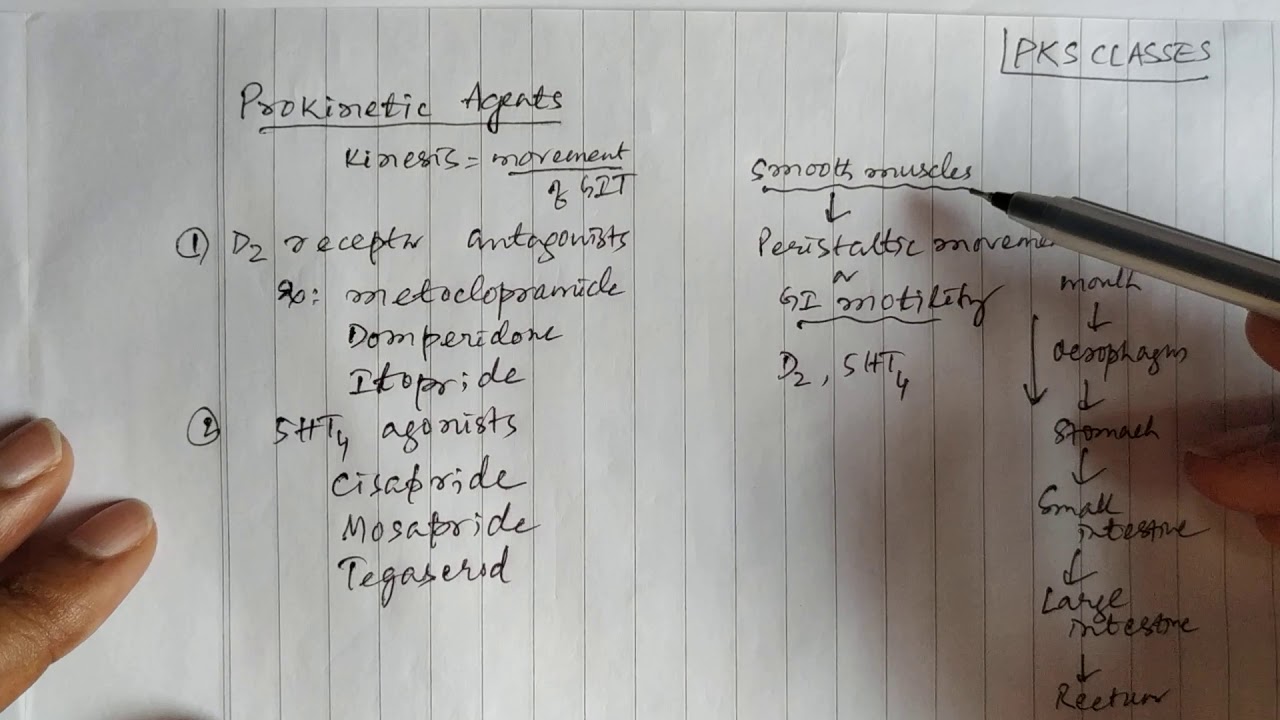 PKS CLASSES
Prokinetic Agents
Kinesis = movement
of GIT
① D2 receptor antagonists
metoclopramide
Domperidone
Itopride
② 5HT4 agonists
Cisapride
Mosapride
Tegaserod
Smooth muscles
↓
Peristaltic
or
GI motility
D2, 5HT4
mouth
↓
oesophagus
↓
stomach
↓
Small
intestine
↓
Large
intestine
↓
Rectum